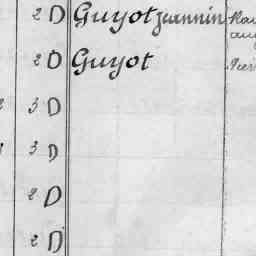 2 D Guyot Jeannin
2 D Guyot
3 D
3 D
2 D
2 D